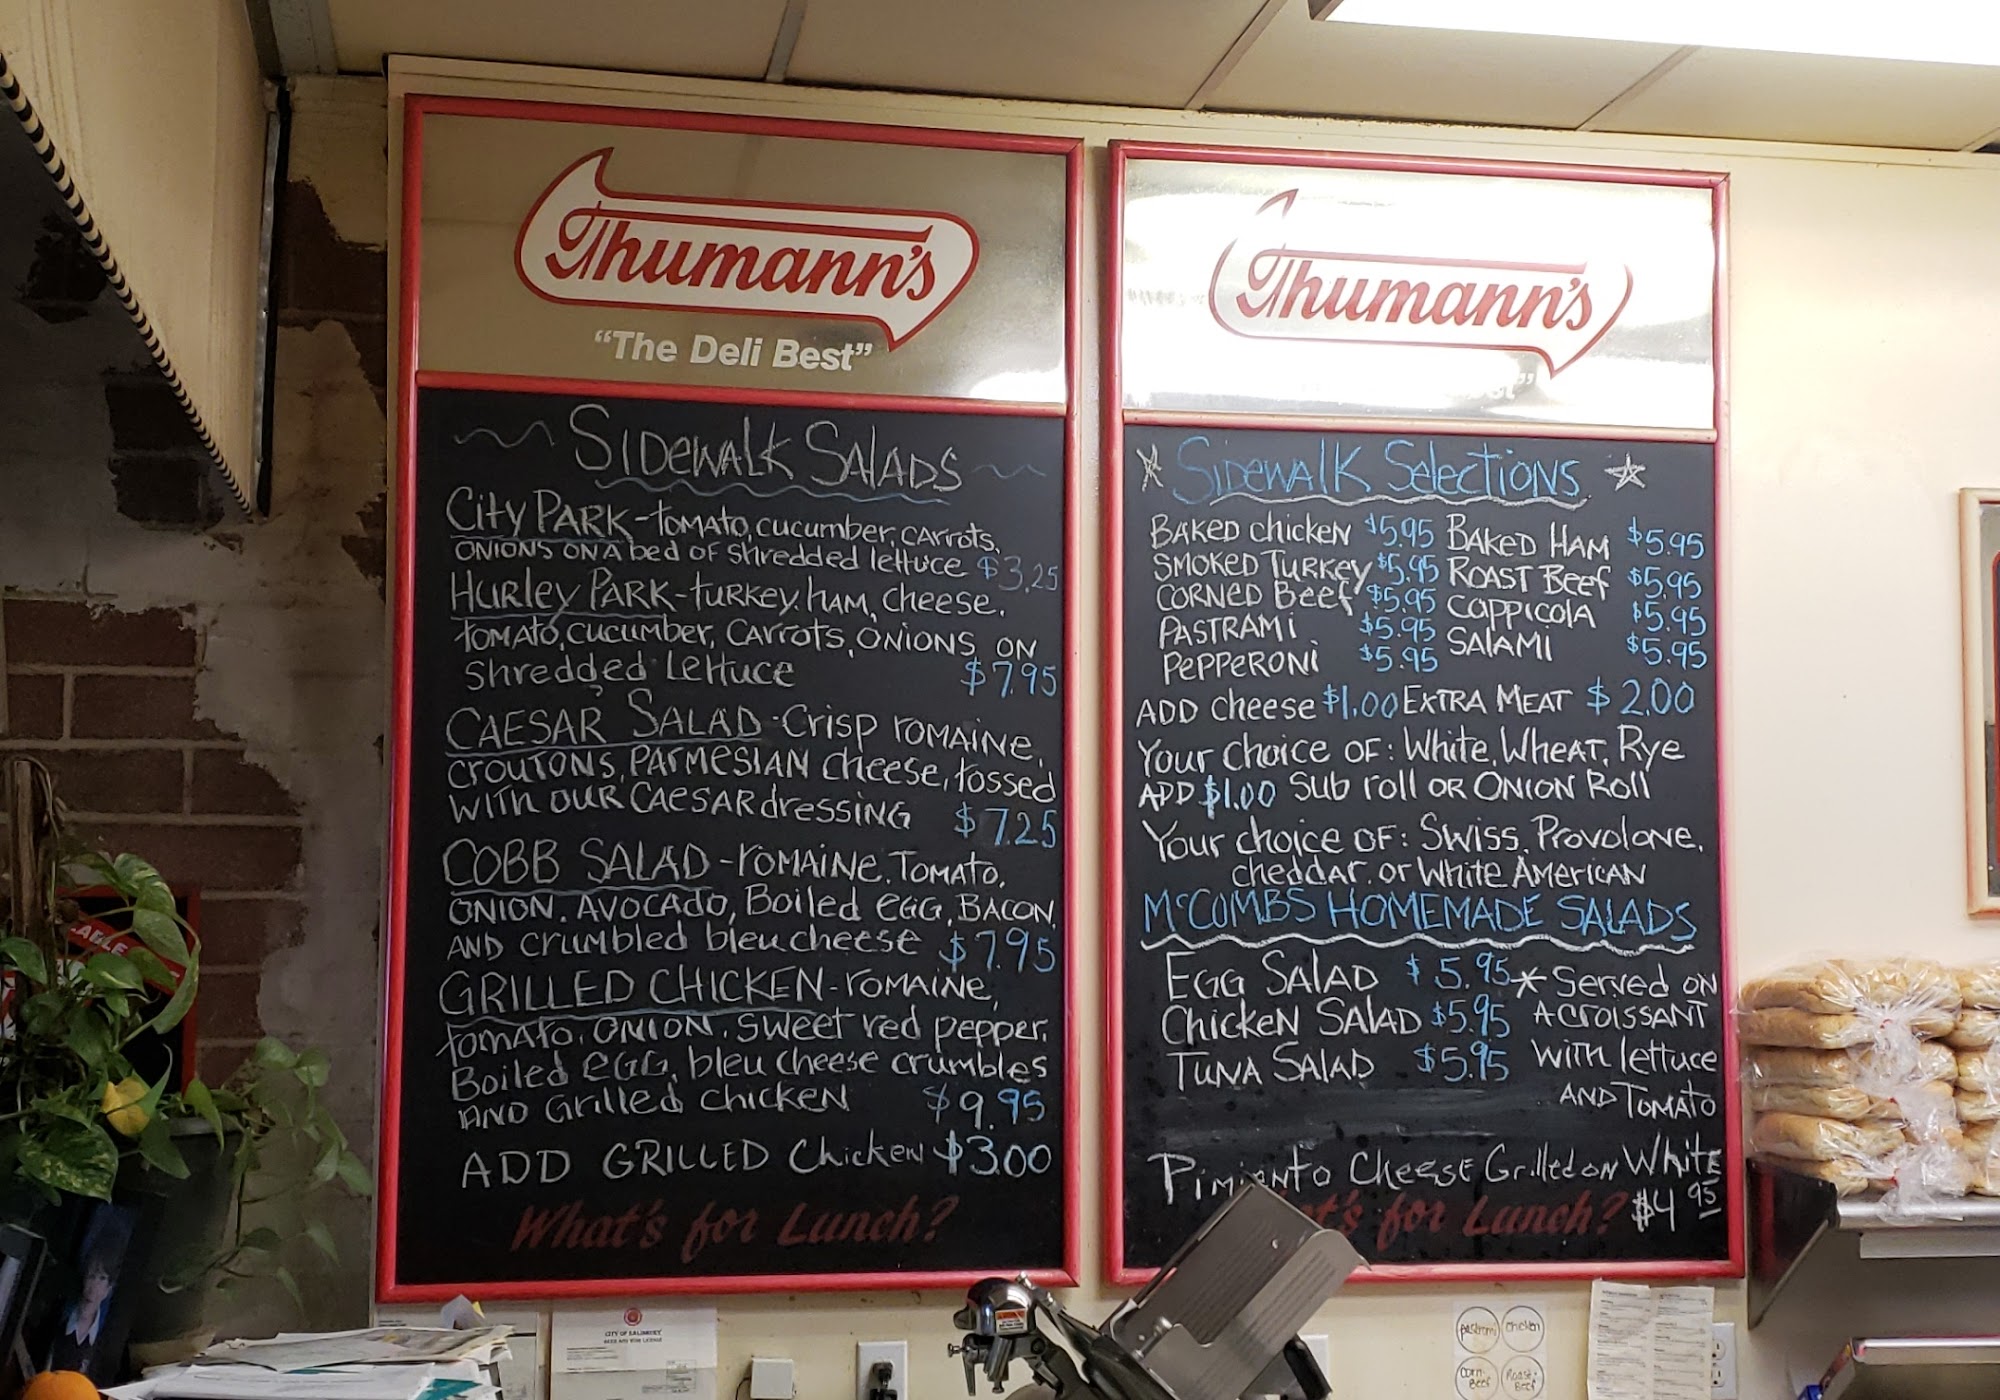 Thumann's
"The Deli Best"
Sidewalk Salads
City Park - tomato, cucumber, carrots,
onions on a bed of shredded lettuce $3.25
Hurley Park - turkey, ham, cheese,
tomato, cucumber, carrots, onions on
shredded lettuce $7.95
Caesar Salad - Crisp romaine,
croutons, parmesian cheese, tossed
with our Caesar dressing $7.25
Cobb Salad - romaine, tomato,
onion, avocado, boiled egg, bacon,
and crumbled bleu cheese $7.95
Grilled Chicken - romaine,
tomato, onion, sweet red pepper,
boiled egg, bleu cheese crumbles
and grilled chicken $9.95
Add grilled chicken $3.00
What's for Lunch?
Thumann's
Sidewalk Selections
Baked chicken $5.95 Baked Ham $5.95
Smoked Turkey $5.95 Roast Beef $5.95
Corned Beef $5.95 Cappicola $5.95
Pastrami $5.95 Salami $5.95
Pepperoni $5.95
Add cheese $1.00 Extra Meat $2.00
Your choice of: White, Wheat, Rye
Add $1.00 Sub roll or Onion Roll
Your choice of: Swiss, Provolone,
cheddar, or White American
McCombs Homemade Salads
Egg Salad $5.95 * Served on
Chicken Salad $5.95 a croissant
Tuna Salad $5.95 with lettuce
and Tomato
Pimiento Cheese Grilled on White
$4.95
for Lunch?
CITY OF SALISBURY
Pastrami
chicken
Corn-
Beef
Roast-
Beef